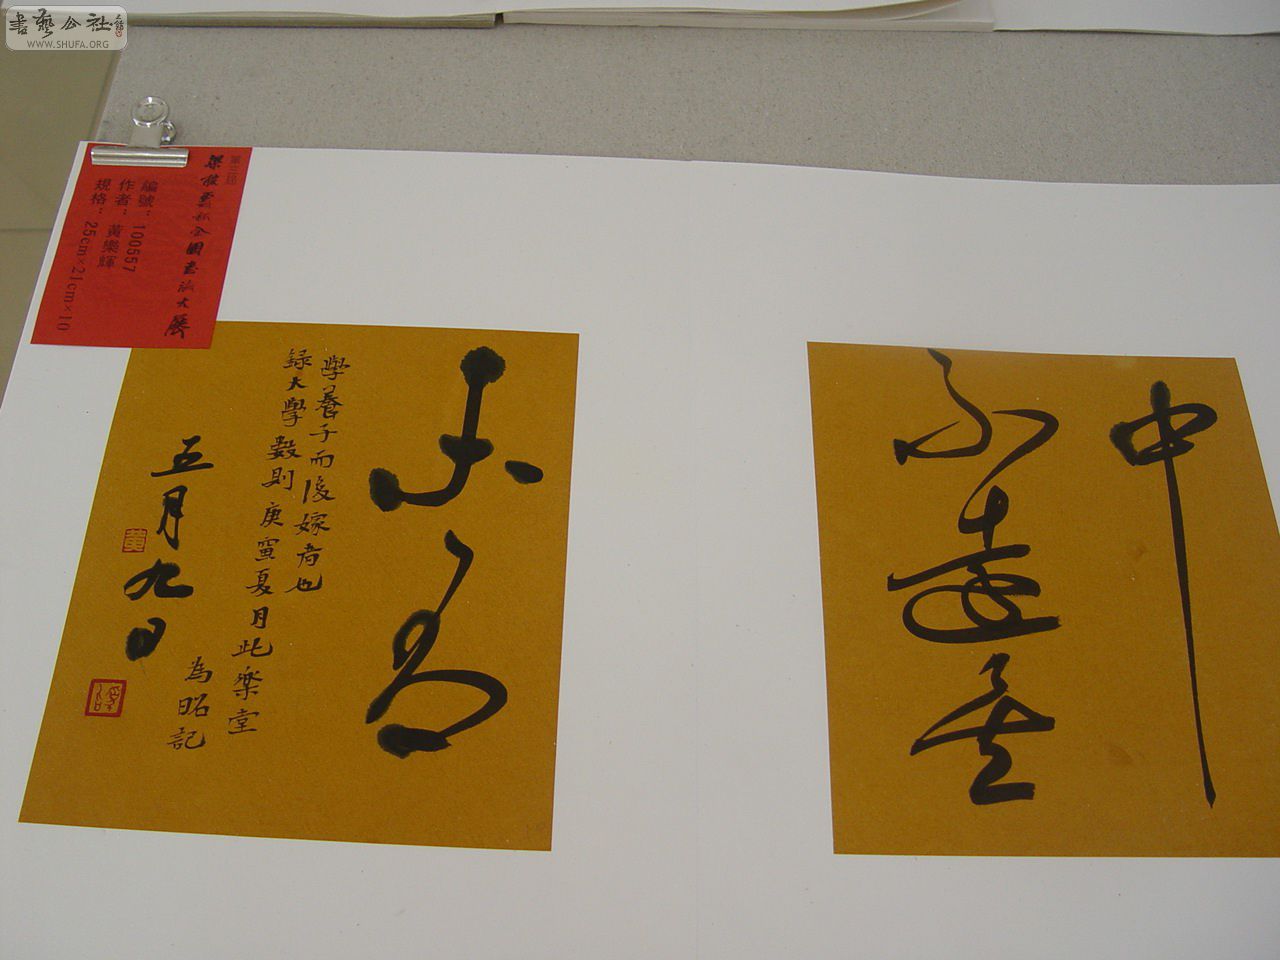 書藝公社
WWW.SHUFA.ORG
第三屆
梁披雲杯全國書法大展
編號：100557
作者：黃樂輝
規格：25cm×21cm×10
中
不遠矣
未有
學養子而後嫁者也
録大學數則庚寅夏月此樂堂
為昭記
五月九日
黃